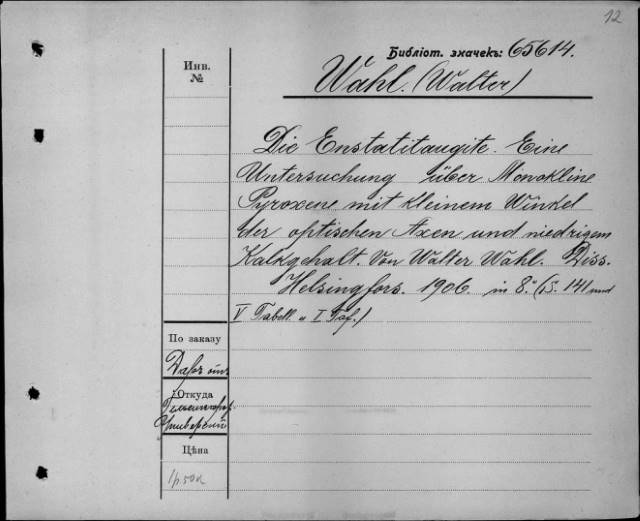 12
Библіот. значекъ: 65614.
Инв.
№
Wahl. (Walter)
Die Enstatitaugite. Eine
Untersuchung über Monokline
Pyroxene mit kleinem Winkel
der optischen Axen und niedrigem
Kalkgehalt. Von Walter Wahl. Diss.
Helsingfors. 1906. in 8.° (S. 141 und
V Tabell. u I Taf.)
По заказу
Даръ отъ
Откуда
Гельсингфор.
Университ.
Цѣна
1р 50к